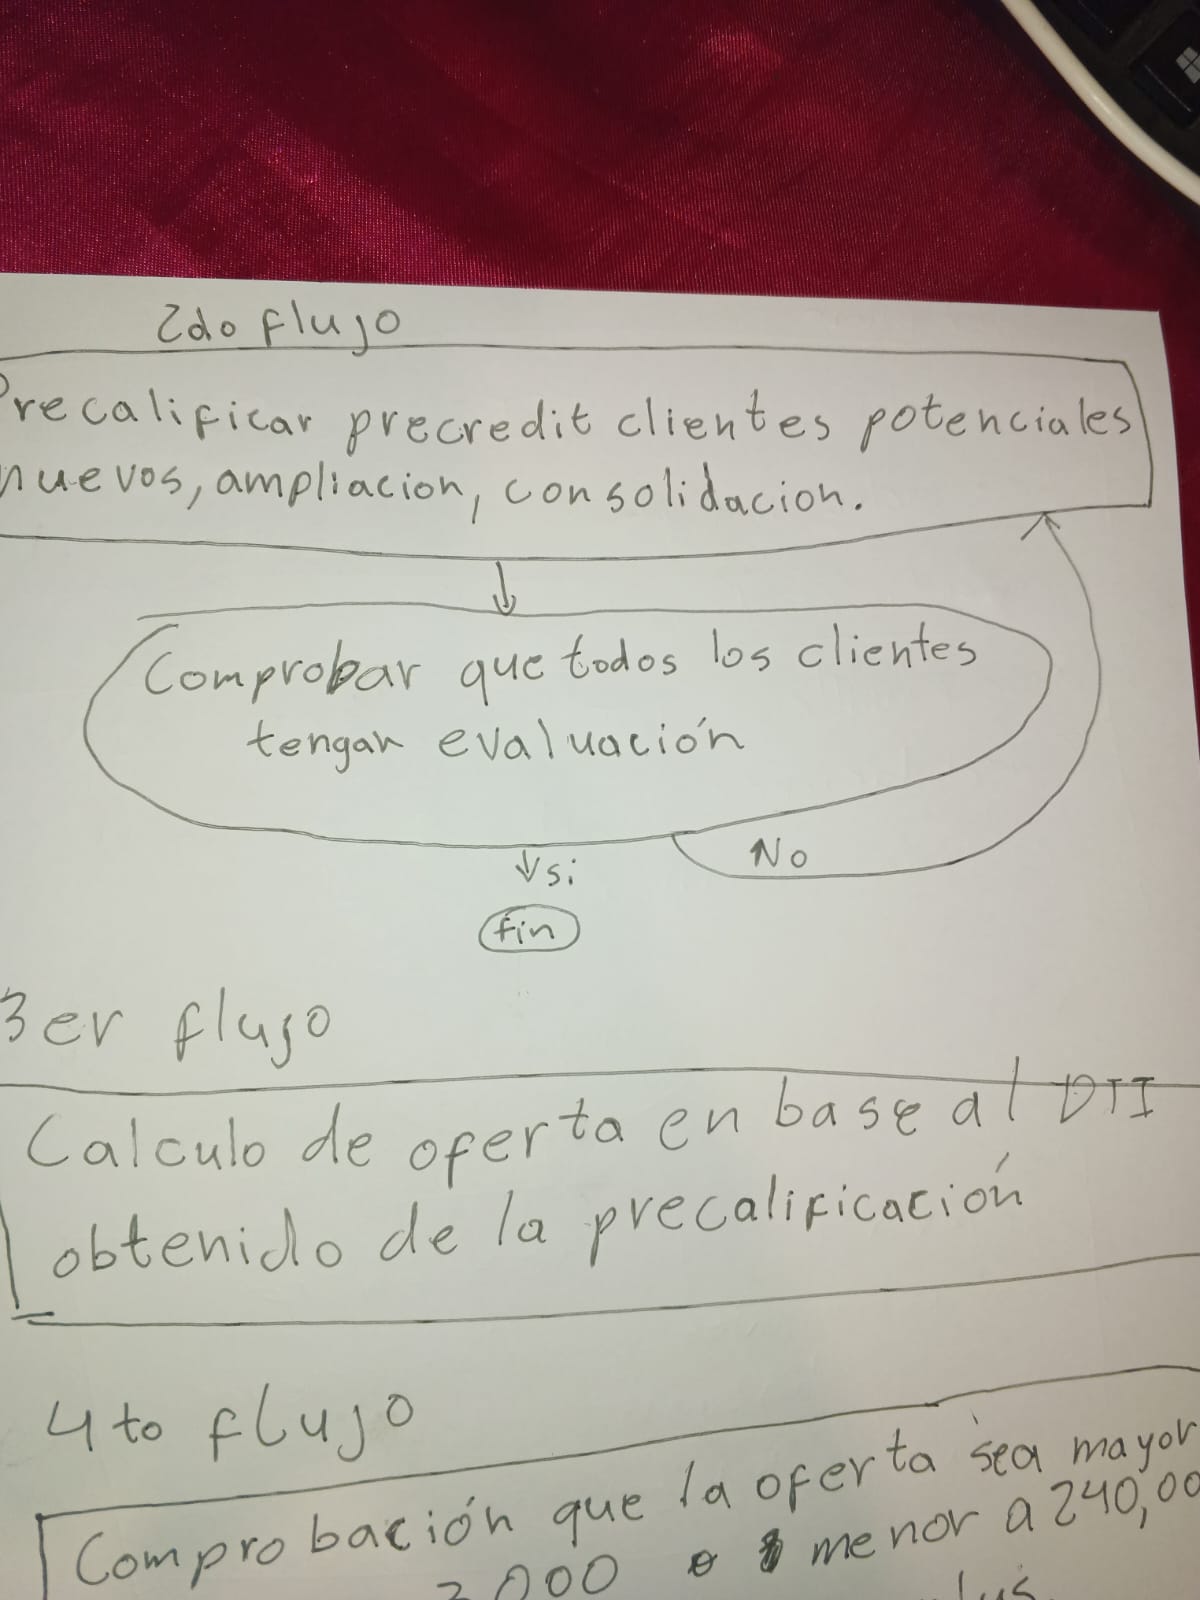 2do flujo
Precalificar precredit clientes potenciales
nuevos, ampliacion, consolidacion.
Comprobar que todos los clientes
tengan evaluación
si
No
fin
3er flujo
Calculo de oferta en base al DTI
obtenido de la precalificación
4to flujo
Comprobación que la oferta sea mayor
000 o menor a 240,00